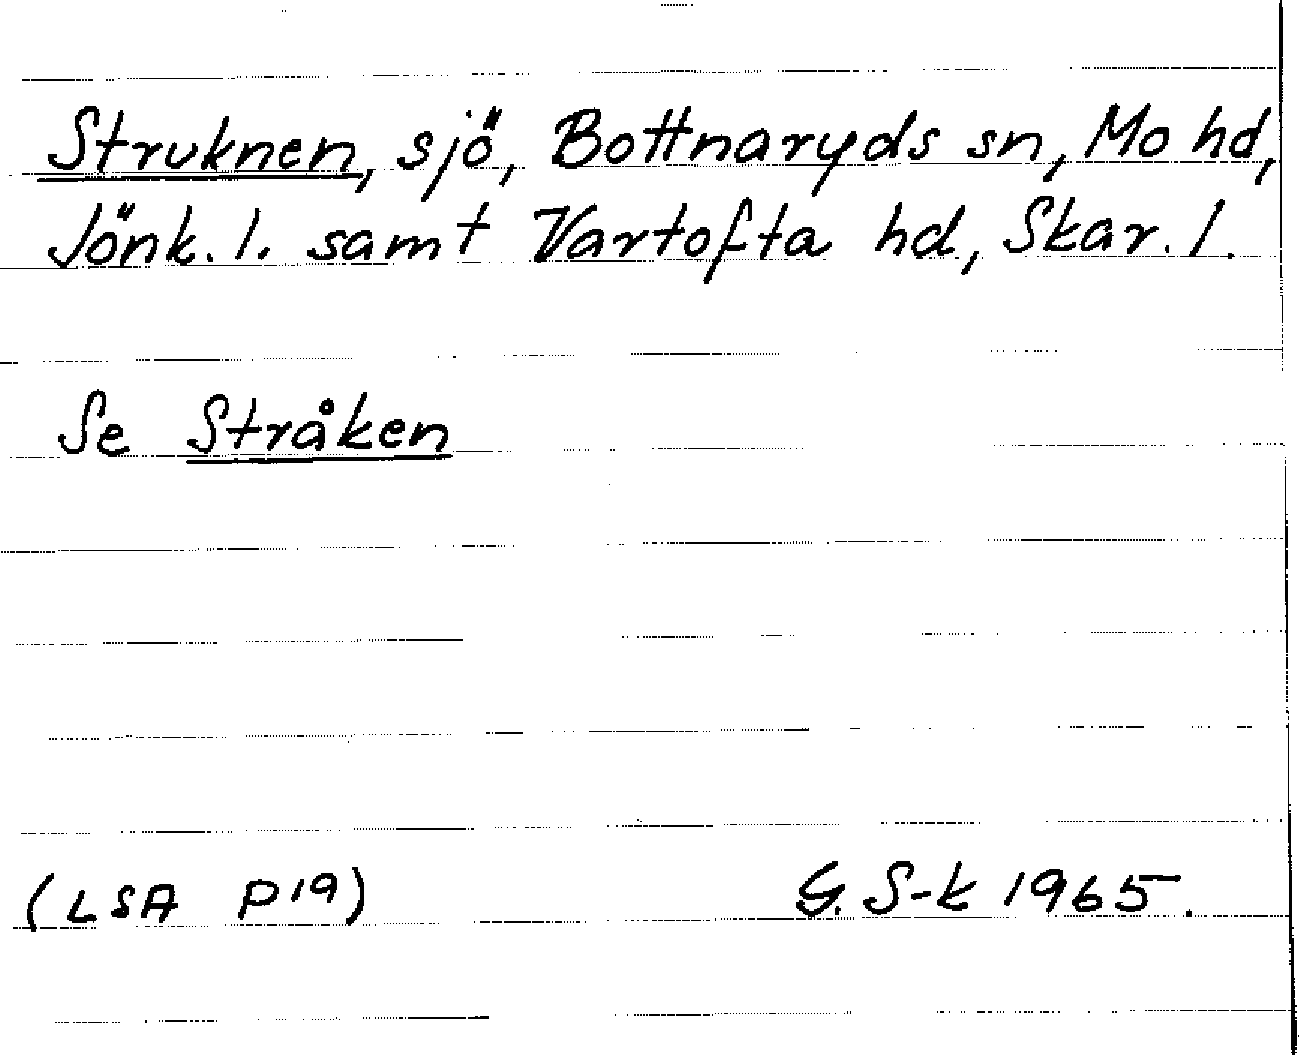 Struknen, sjö, Bottnaryds sn, Mo hd,
Jönk. l. samt Vartofta hd, Skar. l.
Se Stråken
(LSA P19)
G. S-k 1965.